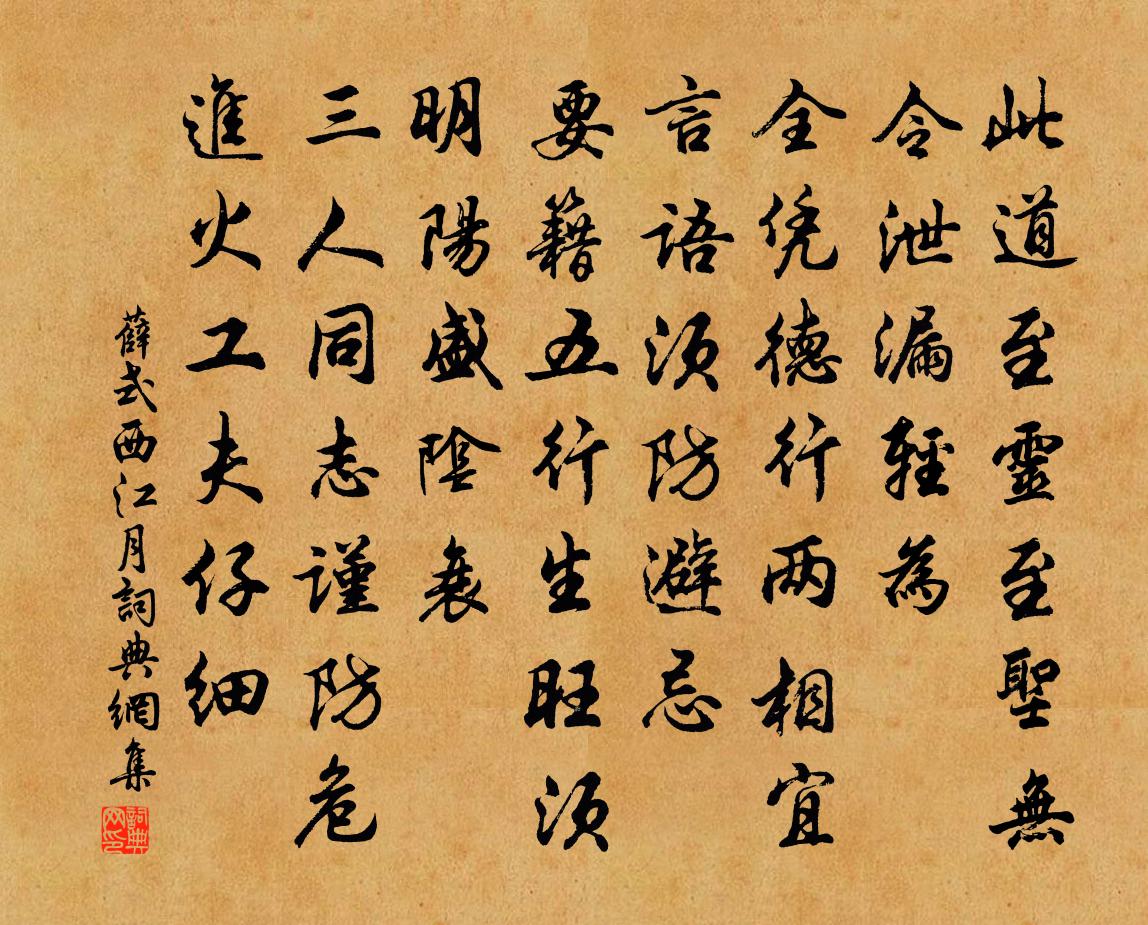 此道至靈至聖無
令泄漏輕為
全凭德行两相宜
言語须防避忌
要籍五行生旺须
明陽盛陰衰
三人同志謹防危
進火工夫仔細
薛式西江月詞典網集
詞典网印